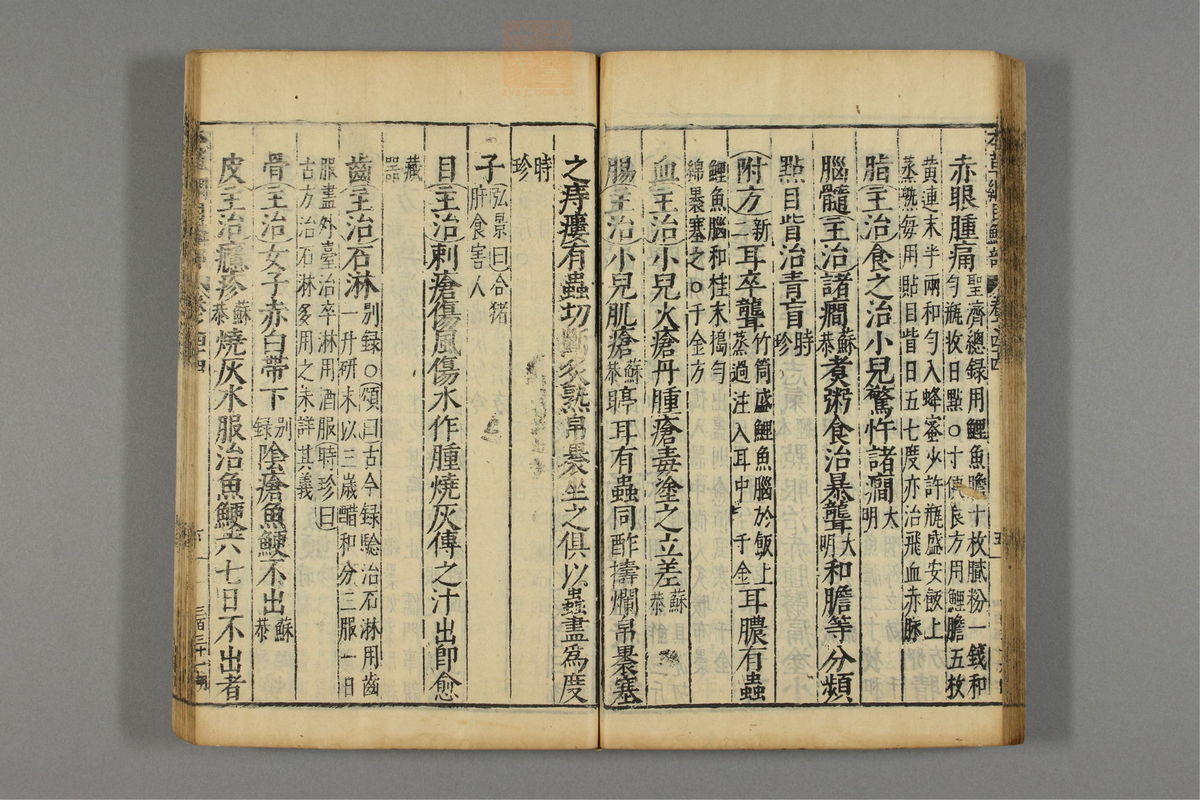 赤眼腫痛聖濟總録用鯉魚膽十枚膩粉一錢和
勻瓶收日點○十便良方用鯉膽五枚
黃連末半兩和勻入蜂蜜少許瓶盛安飯上
蒸熟每用貼目眥日五七度亦治飛血赤脉
脂主治食之治小兒驚忤諸癎大明
腦髓主治諸癎蘇恭煮粥食治暴聾大明和膽等分頻
點目眥治青盲時珍
附方新二耳卒聾竹筒盛鯉魚腦於飯上蒸過注入耳中千金耳膿有蟲
鯉魚腦和桂末搗勻
綿裹塞之○千金方
血主治小兒火瘡丹腫瘡毒塗之立差蘇恭
腸主治小兒肌瘡蘇恭聤耳有蟲同酢擣爛帛裹塞
之痔瘻有蟲切斷炙熟帛裹坐之俱以蟲盡為度
時珍
子弘景曰合猪肝食害人
目主治刺瘡傷風傷水作腫燒灰傅之汁出即愈
藏器
齒主治石淋別録○頌曰古今録驗治石淋用齒
一升研末以三歲醋和分三服一日
服盡外臺治卒淋用酒服時珍曰
古方治石淋多用之未詳其義
骨主治女子赤白帶下別録陰瘡魚鯁不出蘇恭
皮主治癮疹蘇恭燒灰水服治魚鯁六七日不出者